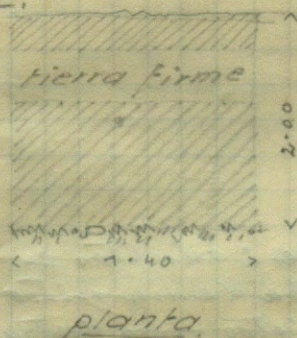 tierra firme
2.00
1.40
planta